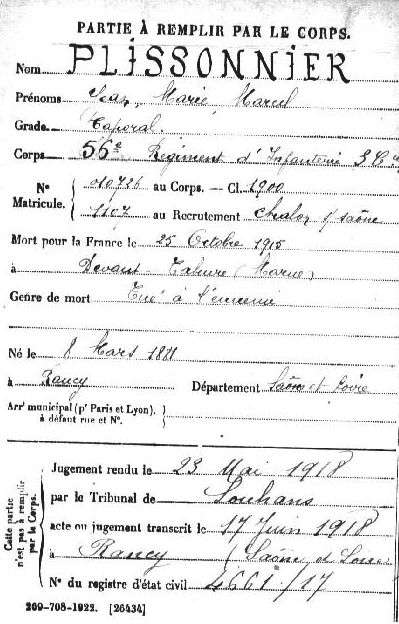 PARTIE À REMPLIR PAR LE CORPS.
Nom PLISSONNIER
Prénoms Jean, Marie, Marcel
Grade Caporal
Corps 56e Régiment d'Infanterie
N° Matricule. 010726 au Corps. — Cl. 1900
1107 au Recrutement Chalon s/ Saône
Mort pour la France le 25 Octobre 1915
à Devant Tahure (Marne)
Genre de mort Tué à l'ennemi
Né le 8 Mars 1881
à Rancy Département Saône et Loire
Arrt municipal (pr Paris et Lyon),
à défaut rue et N°.
Cette partie n'est pas à remplir par le Corps.
Jugement rendu le 23 Mai 1918
par le Tribunal de Louhans
acte ou jugement transcrit le 17 Juin 1918
à Rancy (Saône et Loire
N° du registre d'état civil 4661/17
269-708-1922. [26434]